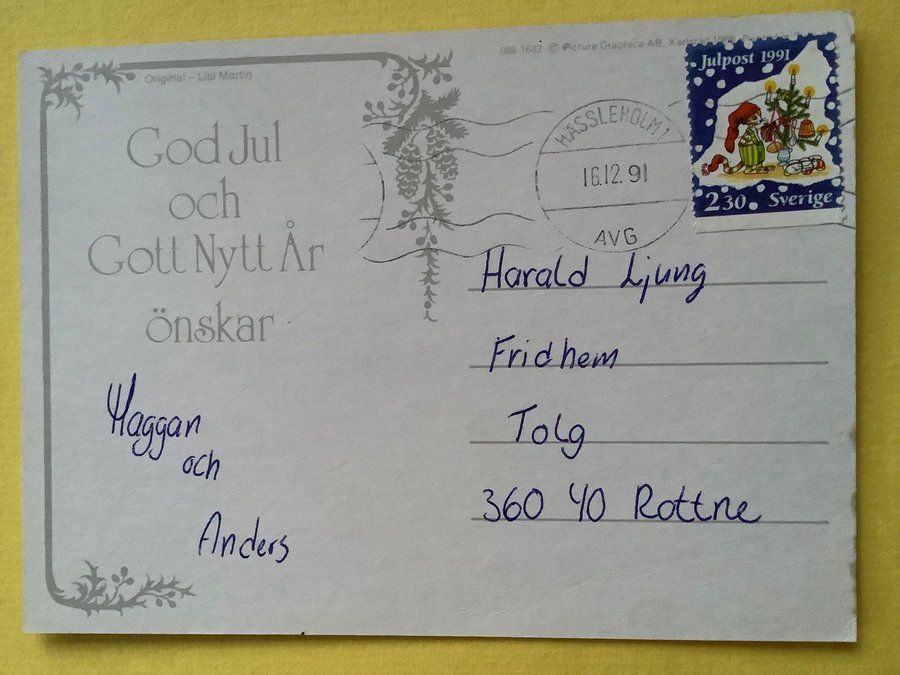 088-1642 © Pictura Graphica AB, Karlstad
Original – Lisi Martin
God Jul
och
Gott Nytt År
önskar
Haggan
och
Anders
HÄSSLEHOLM 1
16.12.91
AVG
Julpost 1991
2 30 Sverige
Harald Ljung
Fridhem
Tolg
360 40 Rottne